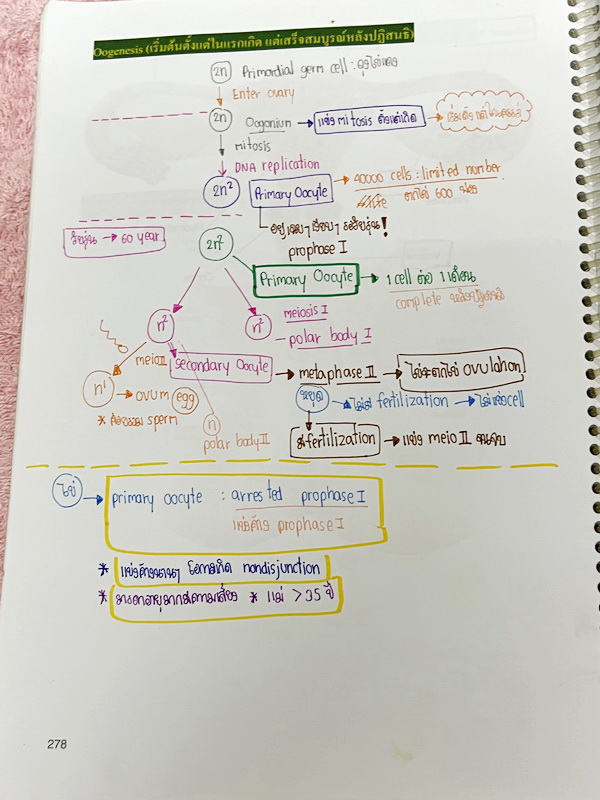 Oogenesis (เริ่มต้นตั้งแต่ในแรกเกิด แต่เสร็จสมบูรณ์หลังปฏิสนธิ)
2n Primordial germ cell : ถุงไข่แดง
Enter ovary
2n Oogonium → แบ่ง mitosis ตั้งแต่เกิด
mitosis
DNA replication
2n² Primary Oocyte → 40000 cells : limited number
life ตกไข่ 600 ฟอง
prophase I
วัยรุ่น → 60 year
2n²
Primary Oocyte → 1 cell ต่อ 1 เดือน
complete หลังปฏิสนธิ
n² n² meiosis I
polar body I
meio II secondary Oocyte → metaphase II → ไข่จะตกไข่ ovulation
n¹ → ovum egg
หยุด → ไม่มี fertilization → ไม่แบ่ง cell
* sperm
n
polar body II
มี fertilization → แบ่ง meio II จนจบ
ไข่ → primary oocyte : arrested prophase I
แบ่งค้าง prophase I
* แบ่งค้างนานๆ โอกาสเกิด nondisjunction
* มารดาอายุมากมีความเสี่ยง * แม่ > 35 ปี
278